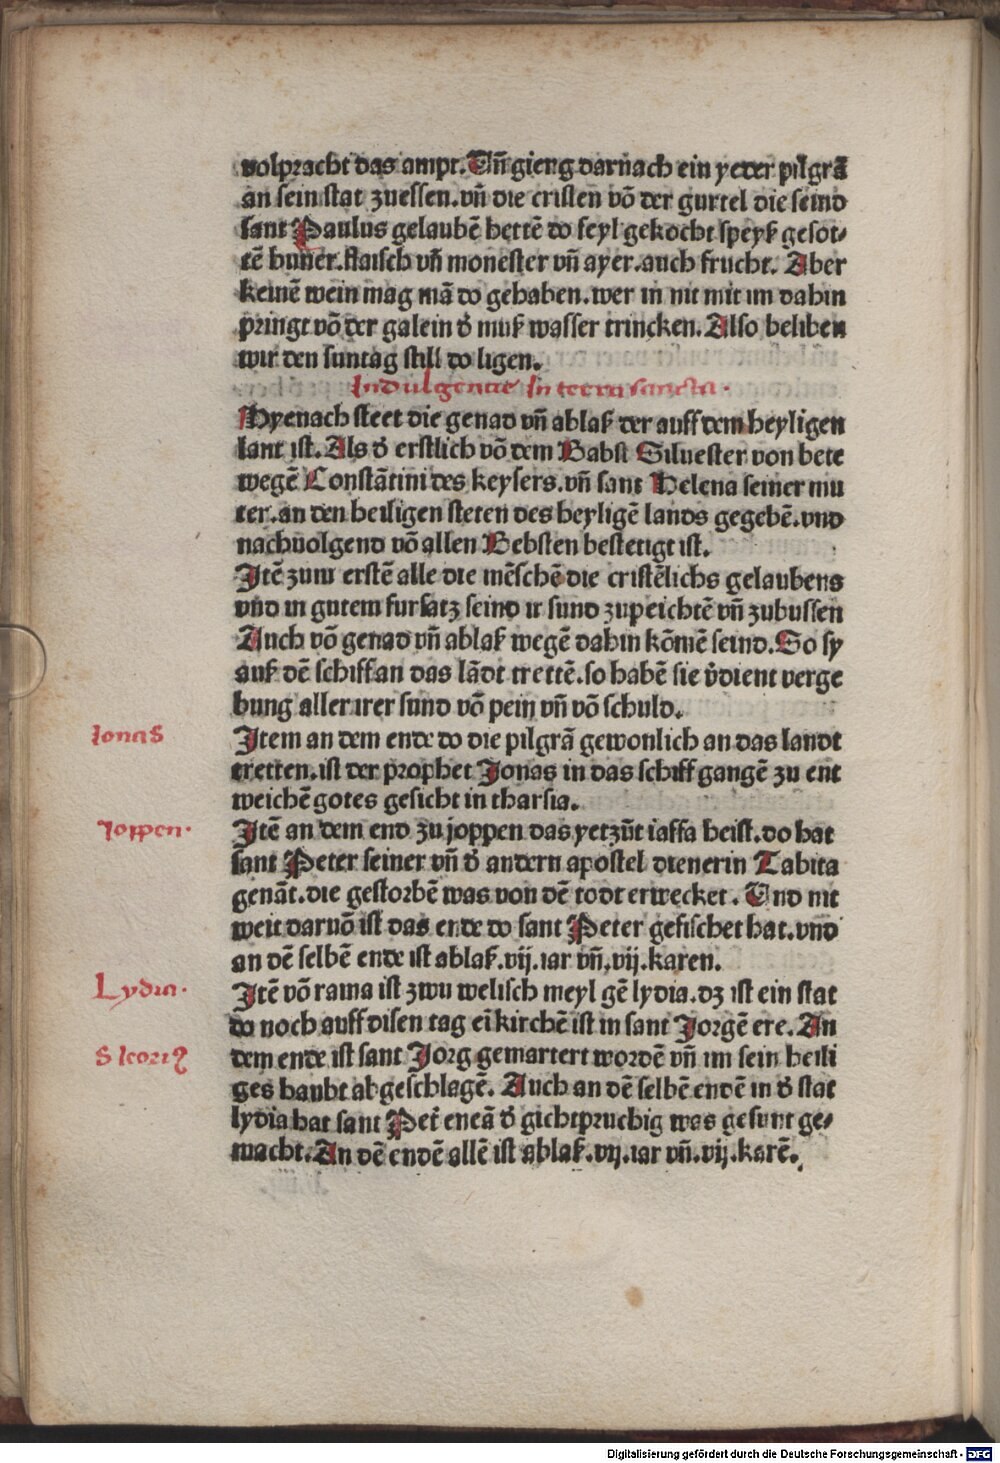 volpracht das ampt. Vn̄ gieng darnach ein yeder pilgrā
an sein stat zuessen. vn̄ die cristen vō der gurtel die seind
sant Paulus gelaubē hettē do feyl gekocht speyß gesot-
tē huner. flaisch vn̄ monester vn̄ ayer. auch frucht. Aber
keinē wein mag mā do gehaben. wer in nit mit im dahin
pringt vō der galein d̕ muß wasser trincken. Also beliben
wir den suntag still do ligen.
Indulgentie in terra sancta.
Hyenach steet die genad vn̄ ablaß der auff dem heyligen
lant ist. Als d̕ erstlich vō dem Babst Siluester von bete
wegē Constātini des keysers. vn̄ sant Helena seiner mu
ter. an den heiligen steten des heyligē lands gegebē. vnd
nachuolgend vō allen Bebsten bestetigt ist.
Itē zum erstē alle die mēschē die cristēlichs gelaubens
vnd in gutem fursatz seind ir sund zupeichtē vn̄ zubussen
Auch vō genad vn̄ ablaß wegē dahin kōmē seind. So sy
auß dē schiff an das lādt trettē. so habē sie v̕dient verge
bung aller irer sund vō pein vn̄ vō schuld.
Jonas
Item an dem ende do die pilgrā gewonlich an das landt
tretten. ist der prophet Jonas in das schiff gangē zu ent
weichē gotes gesicht in tharsia.
Joppen.
Itē an dem end zu joppen das yetzūt iaffa heist. do hat
sant Peter seiner vn̄ d̕ andern apostel dienerin Tabita
genāt. die gestorbē was von dē todt erwecket. Vnd nit
weit daruō ist das ende do sant Peter gefischet hat. vnd
an dē selbē ende ist ablaß. vij. iar vn̄. vij. karen.
Lydia.
Itē vō rama ist zwu welisch meyl gē lydia. dz ist ein stat
do noch auff disen tag eī kirchē ist in sant Jorgē ere. An
S Jeorig
dem ende ist sant Jorg gemartert wordē vn̄ im sein heili
ges haubt abgeschlagē. Auch an dē selbē endē in d̕ stat
lydia hat sant Pet̕ eneā d̕ gichtpruchig was gesunt ge-
macht. An dē endē allē ist ablaß. vij. iar vn̄. vij. karē.
Digitalisierung gefördert durch die Deutsche Forschungsgemeinschaft - DFG